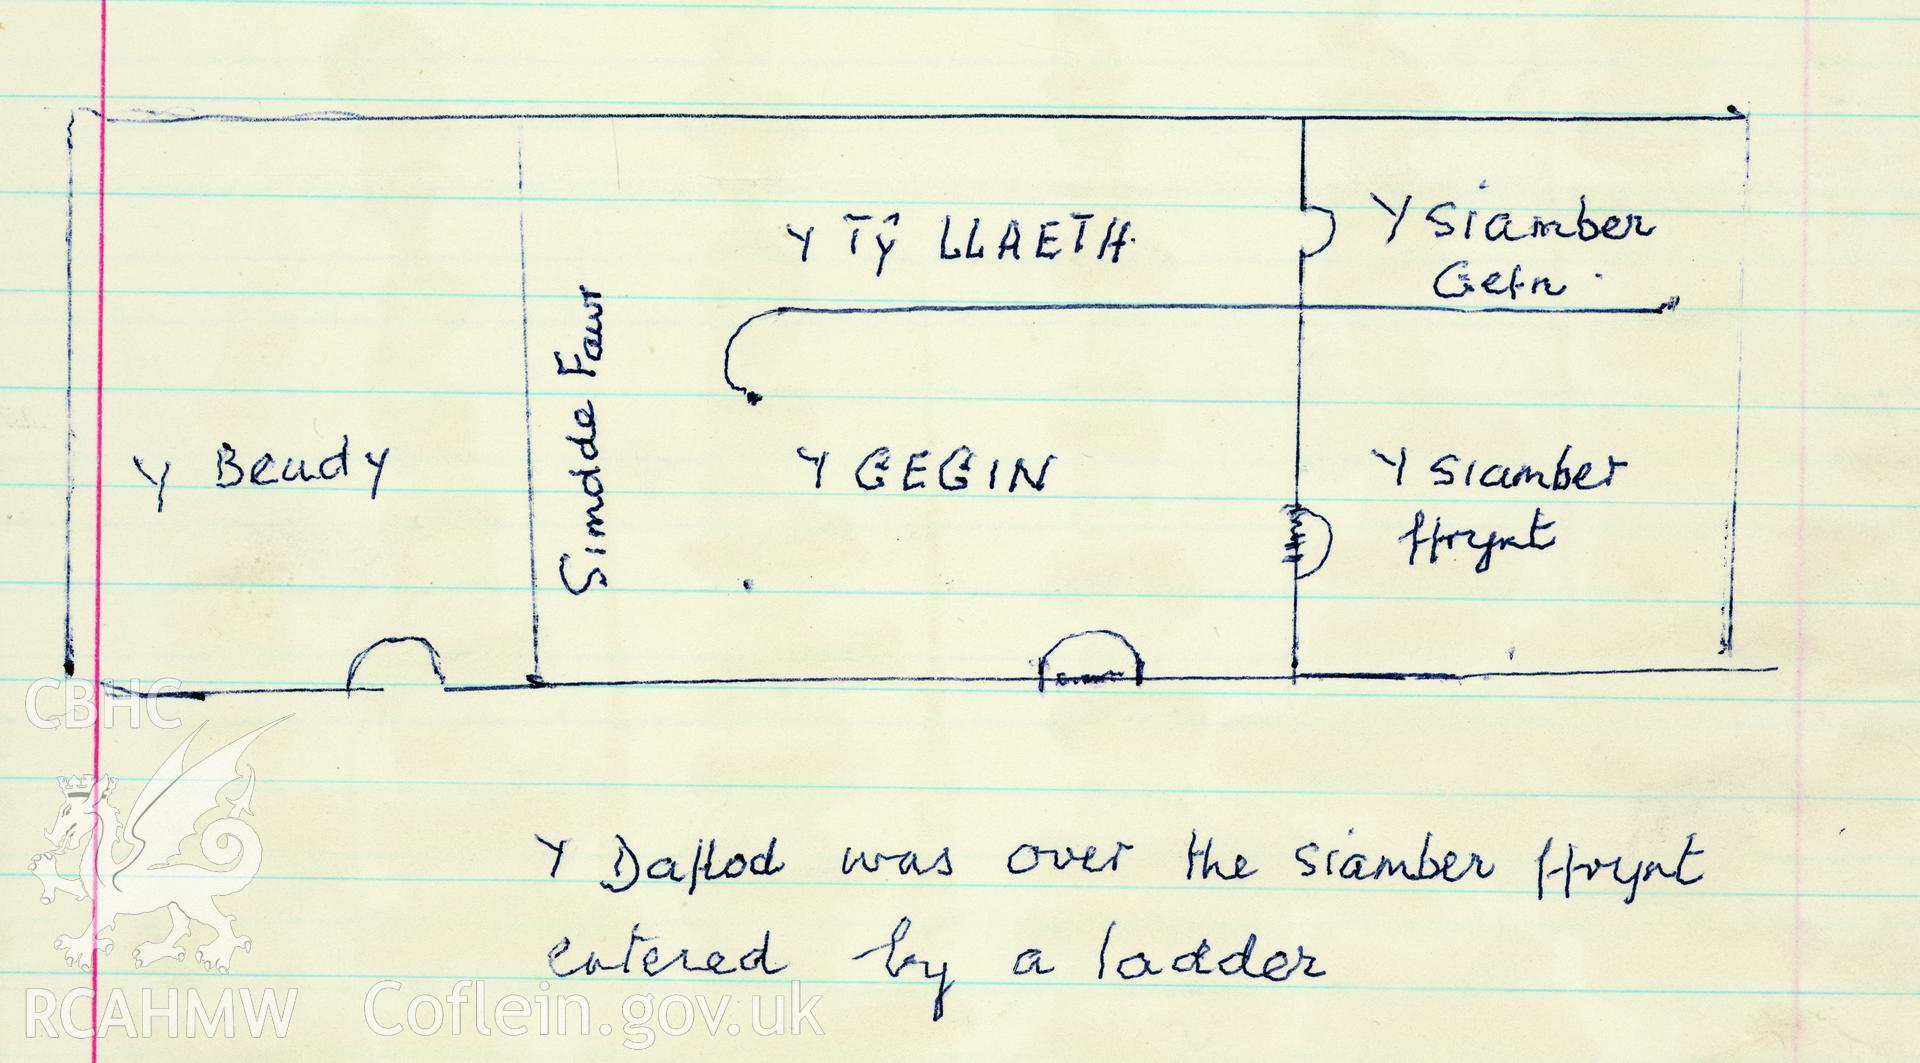 Y TŷLLAETH
Y Siamber
Gefn
Simdde Fawr
Y Beudy
Y GEGIN
Y Siamber
ffrynt
Y Dafflod was over the siamber ffrynt
entered by a ladder
CBHC
RCAHMW
Coflein.gov.uk